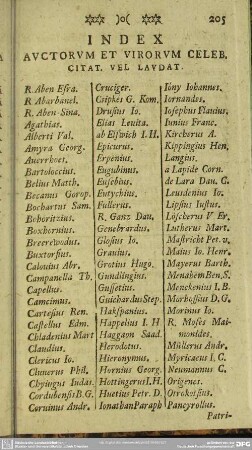 )o( 205
INDEX
AVCTORVM ET VIRORVM CELEB.
CITAT. VEL LAVDAT.
R. Aben Esra.
R Abarbanel.
R. Aben-Sina.
Agathias.
Alberti Val.
Amyra Georg.
Averrhoes.
Bartoloccius.
Belius Matth.
Becanus Gorop.
Bochartus Sam.
Bohoritzius.
Boxhornius.
Breerewodus.
Buxtorfius.
Calouius Abr.
Campanella Th.
Capellus.
Camcimus.
Cartesius Ren.
Castellus Edm.
Chladenius Mart
Claudius.
Clericus Io.
Cluuerus Phil.
Chyingus Indas.
Cordubensis B.G.
Coruinus Andr.
Cruciger.
Csipkes G. Kom.
Drusius Io.
Elias Leuita.
ab Elswich I. H.
Epicurus.
Erpenius.
Eugubinus.
Eusebius.
Eutychius.
Fullerus.
R. Ganz Dau,
Genebrardus.
Glosius Io.
Grauius.
Grotius Hugo.
Gundlingius.
Gussetius.
Guichardus Step.
Hakspanius.
Happelius I. H
Haggaon Saad.
Herodotus.
Hieronymus.
Hornius Georg.
Hottingerus I.H.
Huetius Petr. D.
Ionathan Paraph
Iony Iohannes.
Iornandes.
Iosephus Flauius.
Iunius Franc.
Kircherus A.
Kippingius Hen.
Langius.
a Lapide Corn.
de Lara Dau. C.
Leusdenius Io.
Lipsius Iustus.
Löscherus V Er.
Lutherus Mart.
Mastricht Pet. v.
Maius Io. Henr.
Mayerus Barth.
Menahem Ben. S.
Menckenius I.B.
Morhofius D, G.
Morinus Io.
R. Moses Mai-
monides.
Müllerus Andr.
Myricaeus I, C.
Neumannus C.
Origenes.
Orrokossus.
Pancyrollus.
Patri-